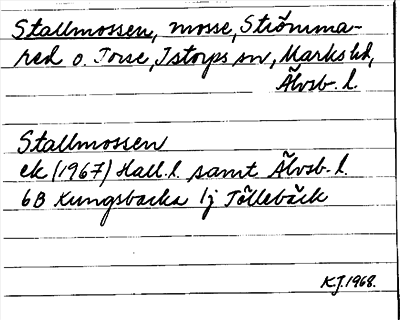 Stallmossen, mosse, Strömma-
red o. Torse, Istorps sn, Marks hd,
Älvsb. l.
Stallmossen
ek (1967) Hall. l. samt Älvsb. l.
6B Kungsbacka 1j Töllebäck
KJ. 1968.